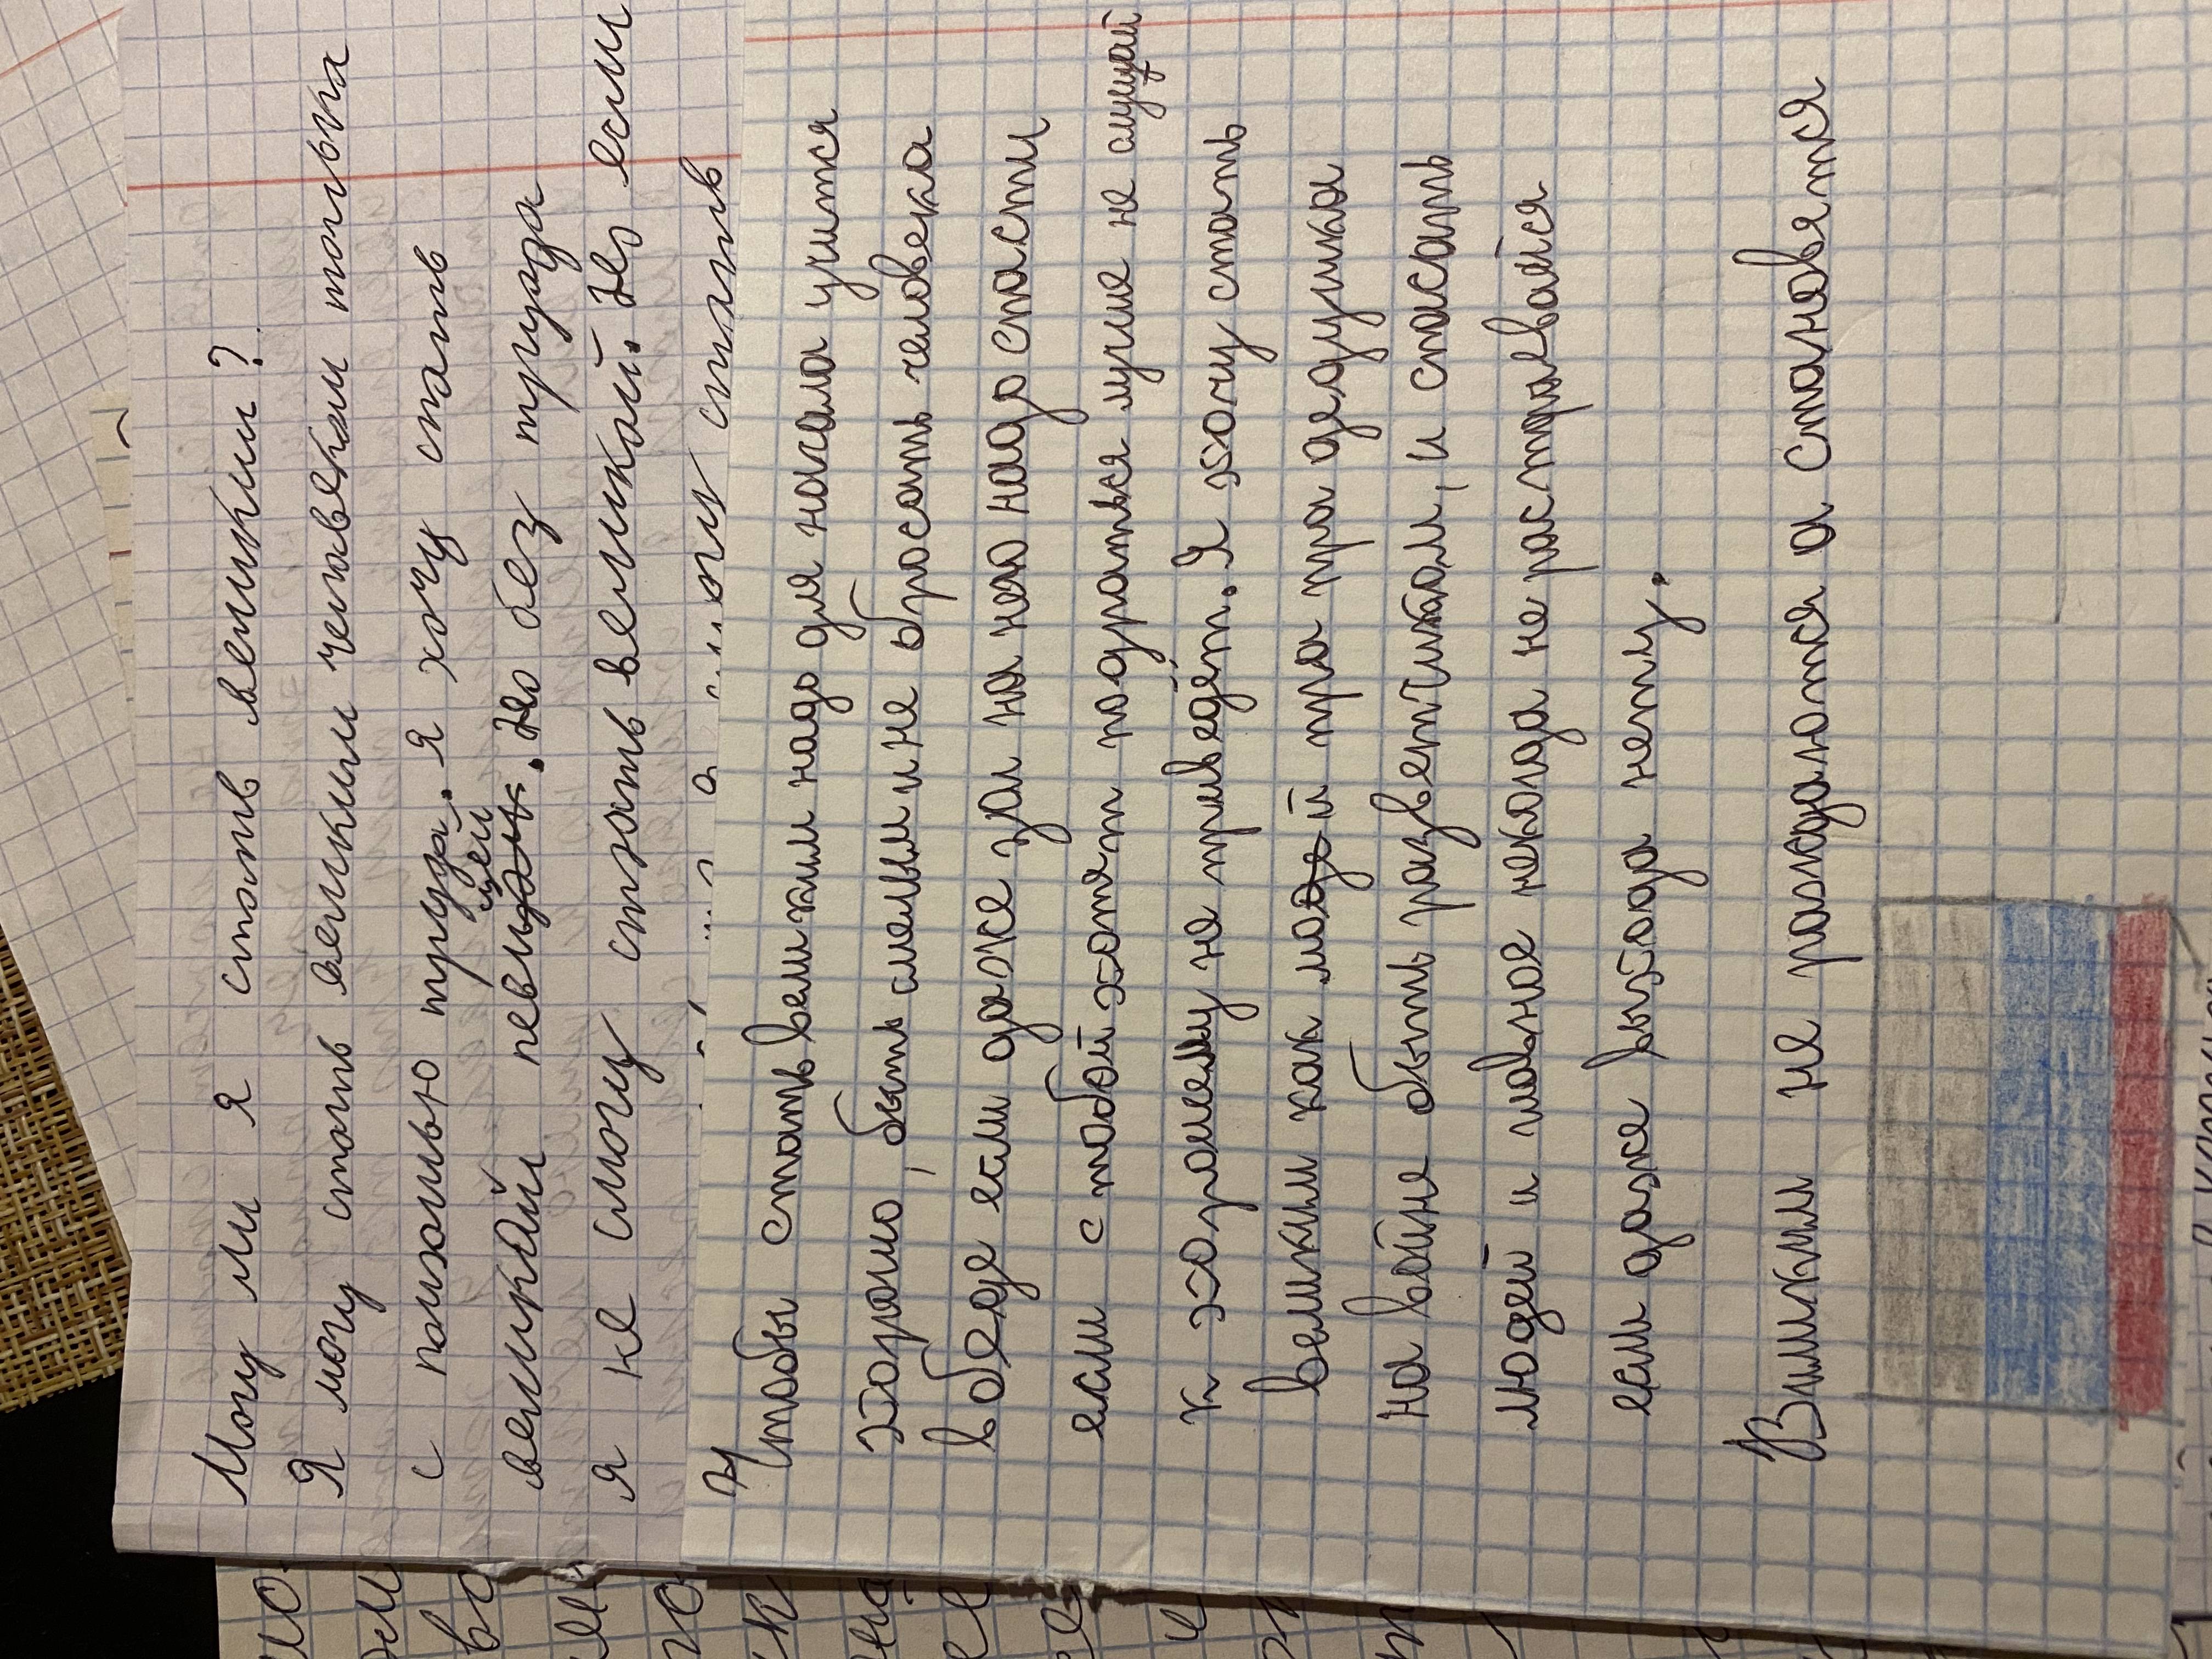 Могу ли я стать великим?
Я могу стать великим человеком только
с помощью труда. Я хочу стать
великой певицей. Но без труда
я не смогу стать великой. Но если
стать
Чтобы стать великим надо для начала учится
хорошо, быть смелым и не бросать человека
в беде если даже за на него надо спасти
если с тобой хотят подраться лучше не слушай
к хорошему не приведёт. Я хочу стать
великим как мой пра пра дедушка
на войне быть разветчиком, и спасать
людей и главное некогда не растраевайся
если даже выхода нету.
Виликими не раждаются а становятся